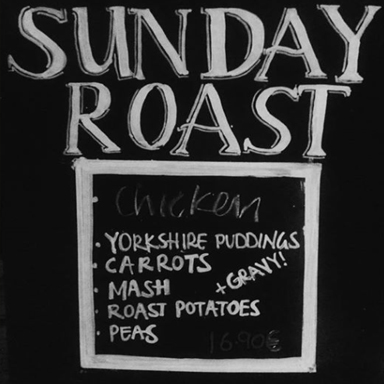 SUNDAY
ROAST
· Chicken
· YORKSHIRE PUDDINGS
· CARROTS
· MASH +GRAVY!
· ROAST POTATOES
· PEAS
16.90€